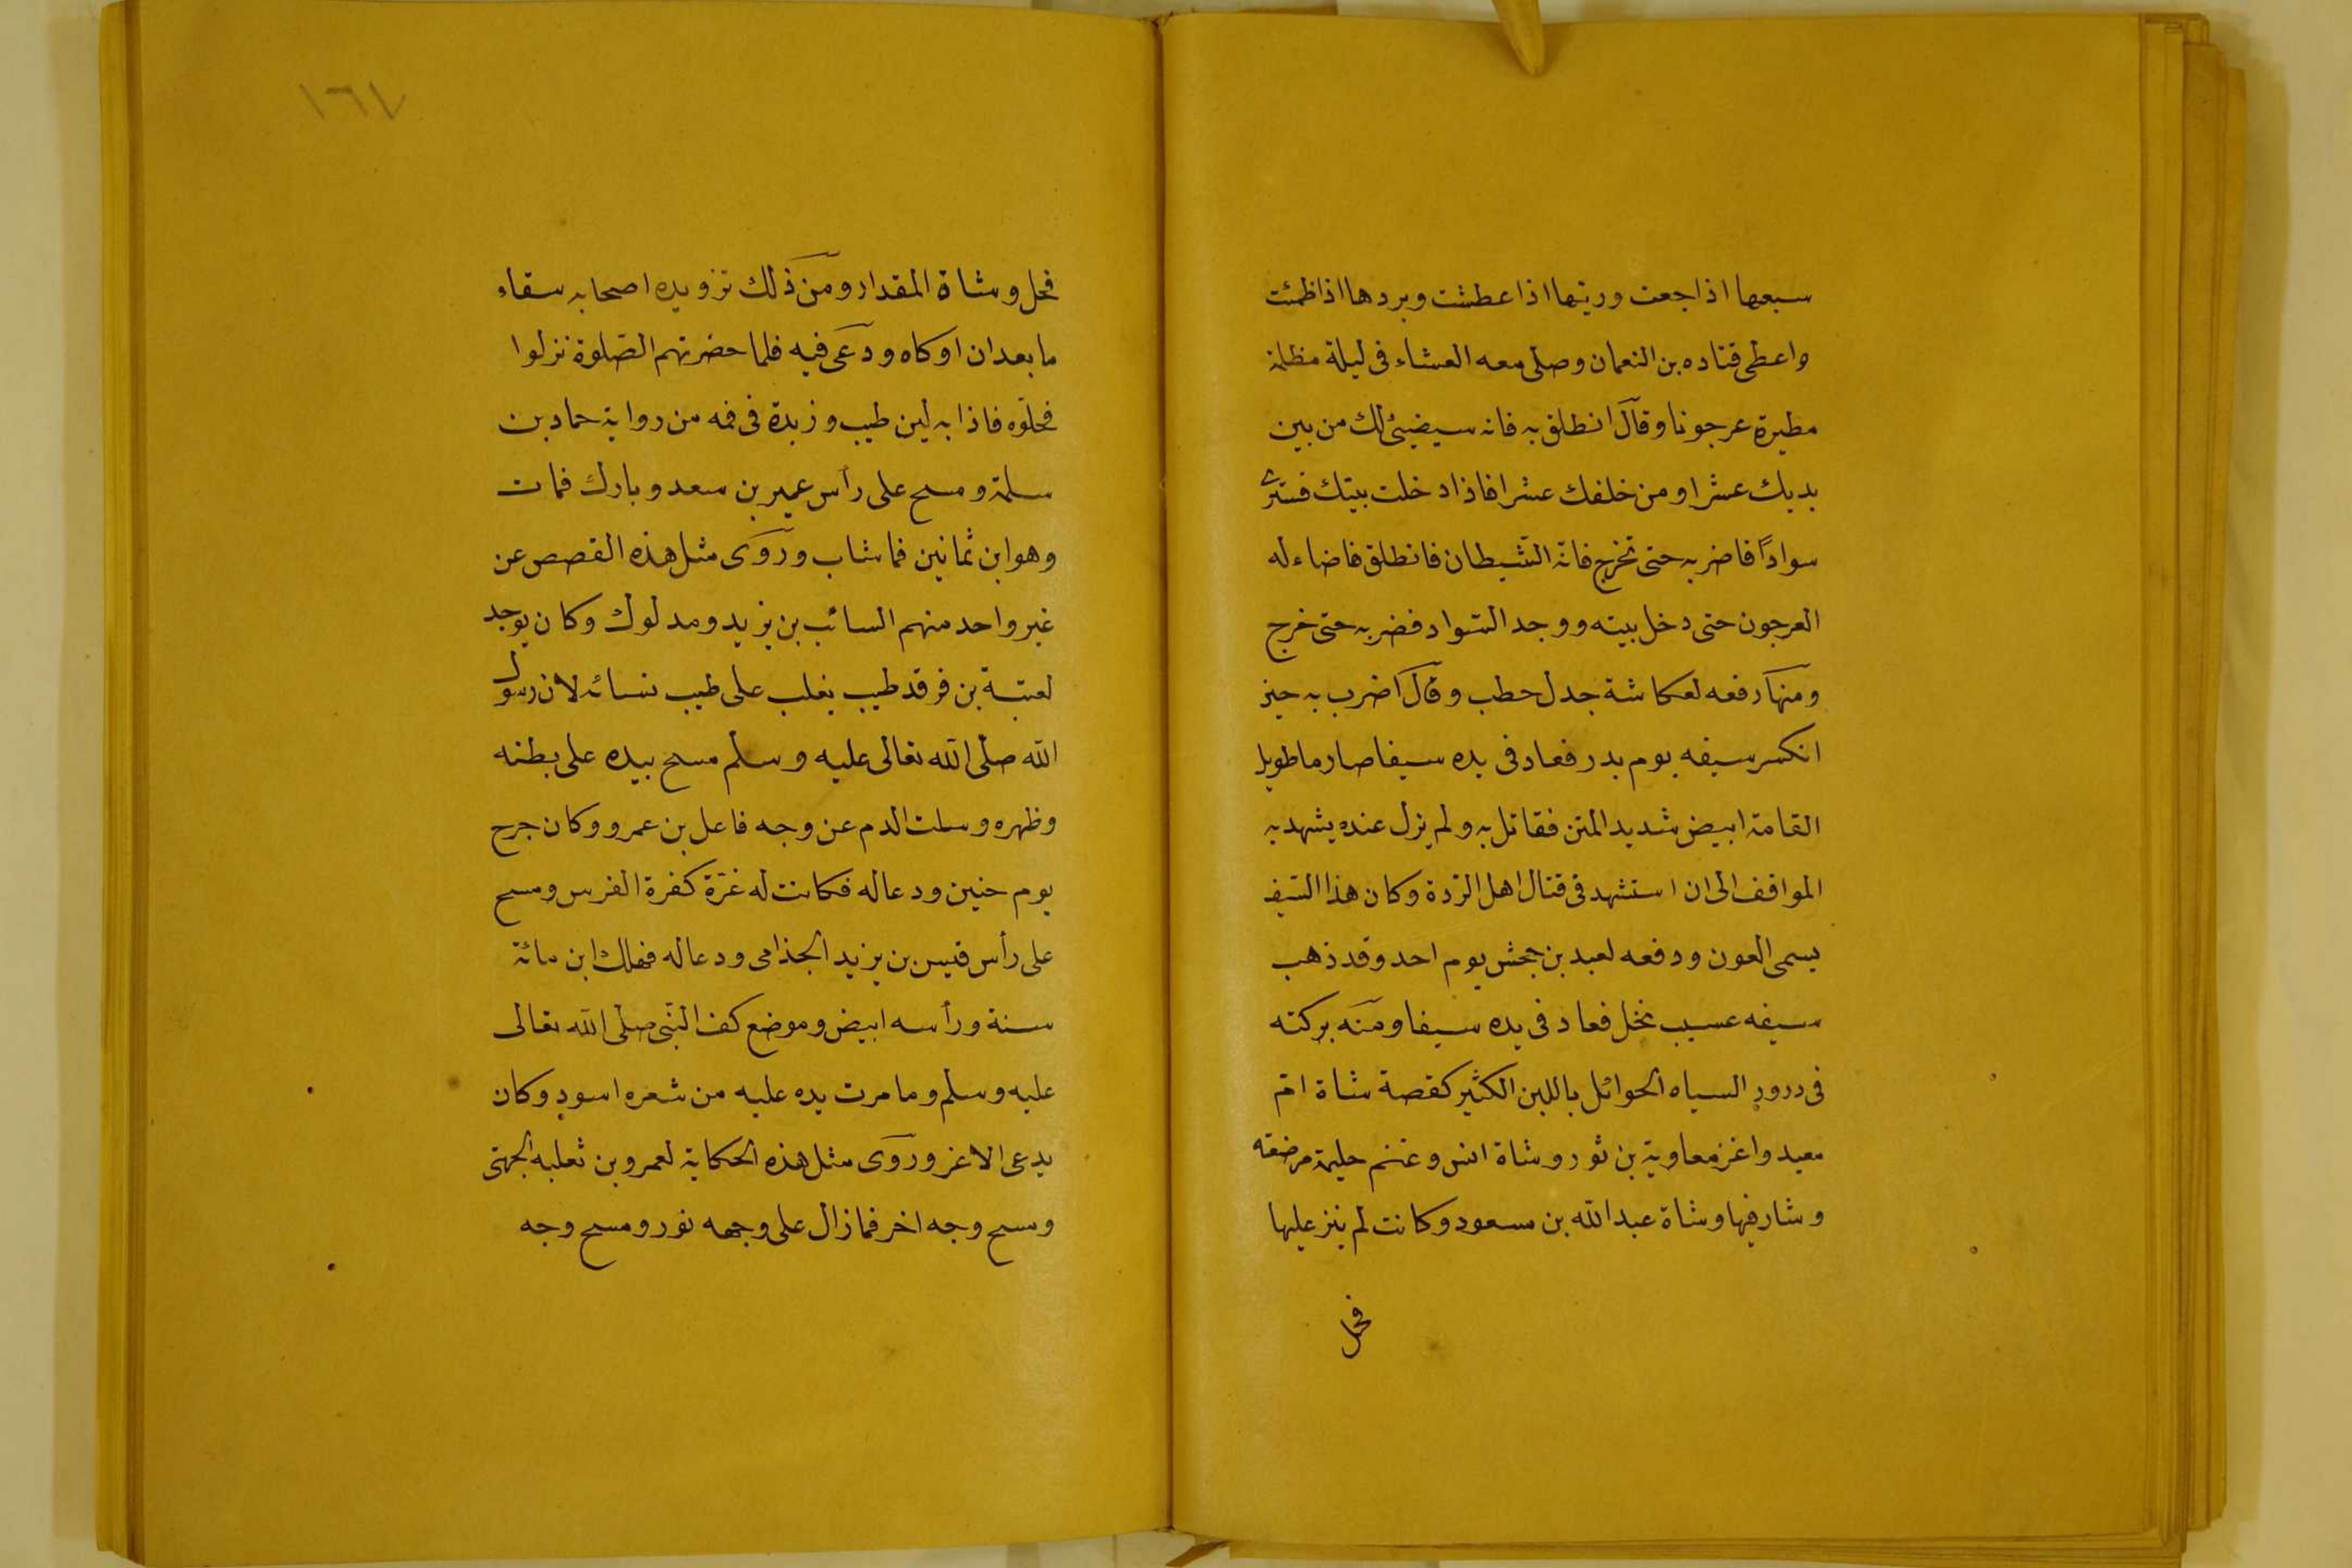 سبعها اذا جعت وريها اذا عطشت وبردها اذا ظمئت
واعطى قتاده بن النعمان وصلى معه العشاء فى ليلة مظلمة
مطيرة عرجونا وقال انطلق به فانه سيضيئ لك من بين
يديك عشرا ومن خلفك عشرا فاذا دخلت بيتك فسترى
سوادًا فاضربه حتى تخرج فانه الشيطان فانطلق فاضاء له
العرجون حتى دخل بيته ووجد السواد فضربه حتى خرج
ومنها دفعه لعكاشة جدل حطب وقال اضرب به حين
انكسر سيفه يوم بدر فعاد فى يده سيفا صارما طويل
القامة ابيض شديد المتن فقاتل به ولم يزل عنده يشهد به
المواقف الى ان استشهد فى قتال اهل الردة وكان هذا السيف
يسمى العون ودفعه لعبد بن جحش يوم احد وقد ذهب
سيفه عسيب نخل فعاد فى يده سيفا ومنه بركته
فى درور السياه الحوائل باللبن الكثير كقصة شاة ام
معبد واعنز معاوية بن ثور وشاة انس وغنم حليمة مرضعته
وشارفها وشاة عبد الله بن مسعود وكانت لم ينز عليها
فحل
١٦٧
فحل وشاة المقداد ومن ذلك تزويده اصحابه سقاء
ما بعد ان اوكاه ودعى فيه فلما حضرتهم الصلوة نزلوا
فحلّوه فاذا به لبن طيب وزبدة فى فمه من رواية حماد بن
سلمة ومسح على رأس عمير بن سعد وبارك فمات
وهو ابن ثمانين فما شاب وروى مثل هذه القصص عن
غير واحد منهم السائب بن يزيد ومدلوك وكان يوجد
لعتبة بن فرقد طيب يغلب على طيب نسائه لان رسول
الله صلى الله تعالى عليه وسلم مسح بيده على بطنه
وظهره وسلت الدم عن وجه فاعل بن عمرو وكان جرح
يوم حنين ودعا له فكانت له غرّة كغرة الفرس ومسح
على رأس قيس بن يزيد الجذامى ودعا له فهلك ابن مائة
سنة ورأسه ابيض وموضع كف النبى صلى الله تعالى
عليه وسلم وما مرت يده عليه من شعره اسود وكان
يدعى الاغر وروى مثل هذه الحكاية لعمرو بن ثعلبه الجهنى
ومسح وجه اخر فما زال على وجهه نور ومسح وجه